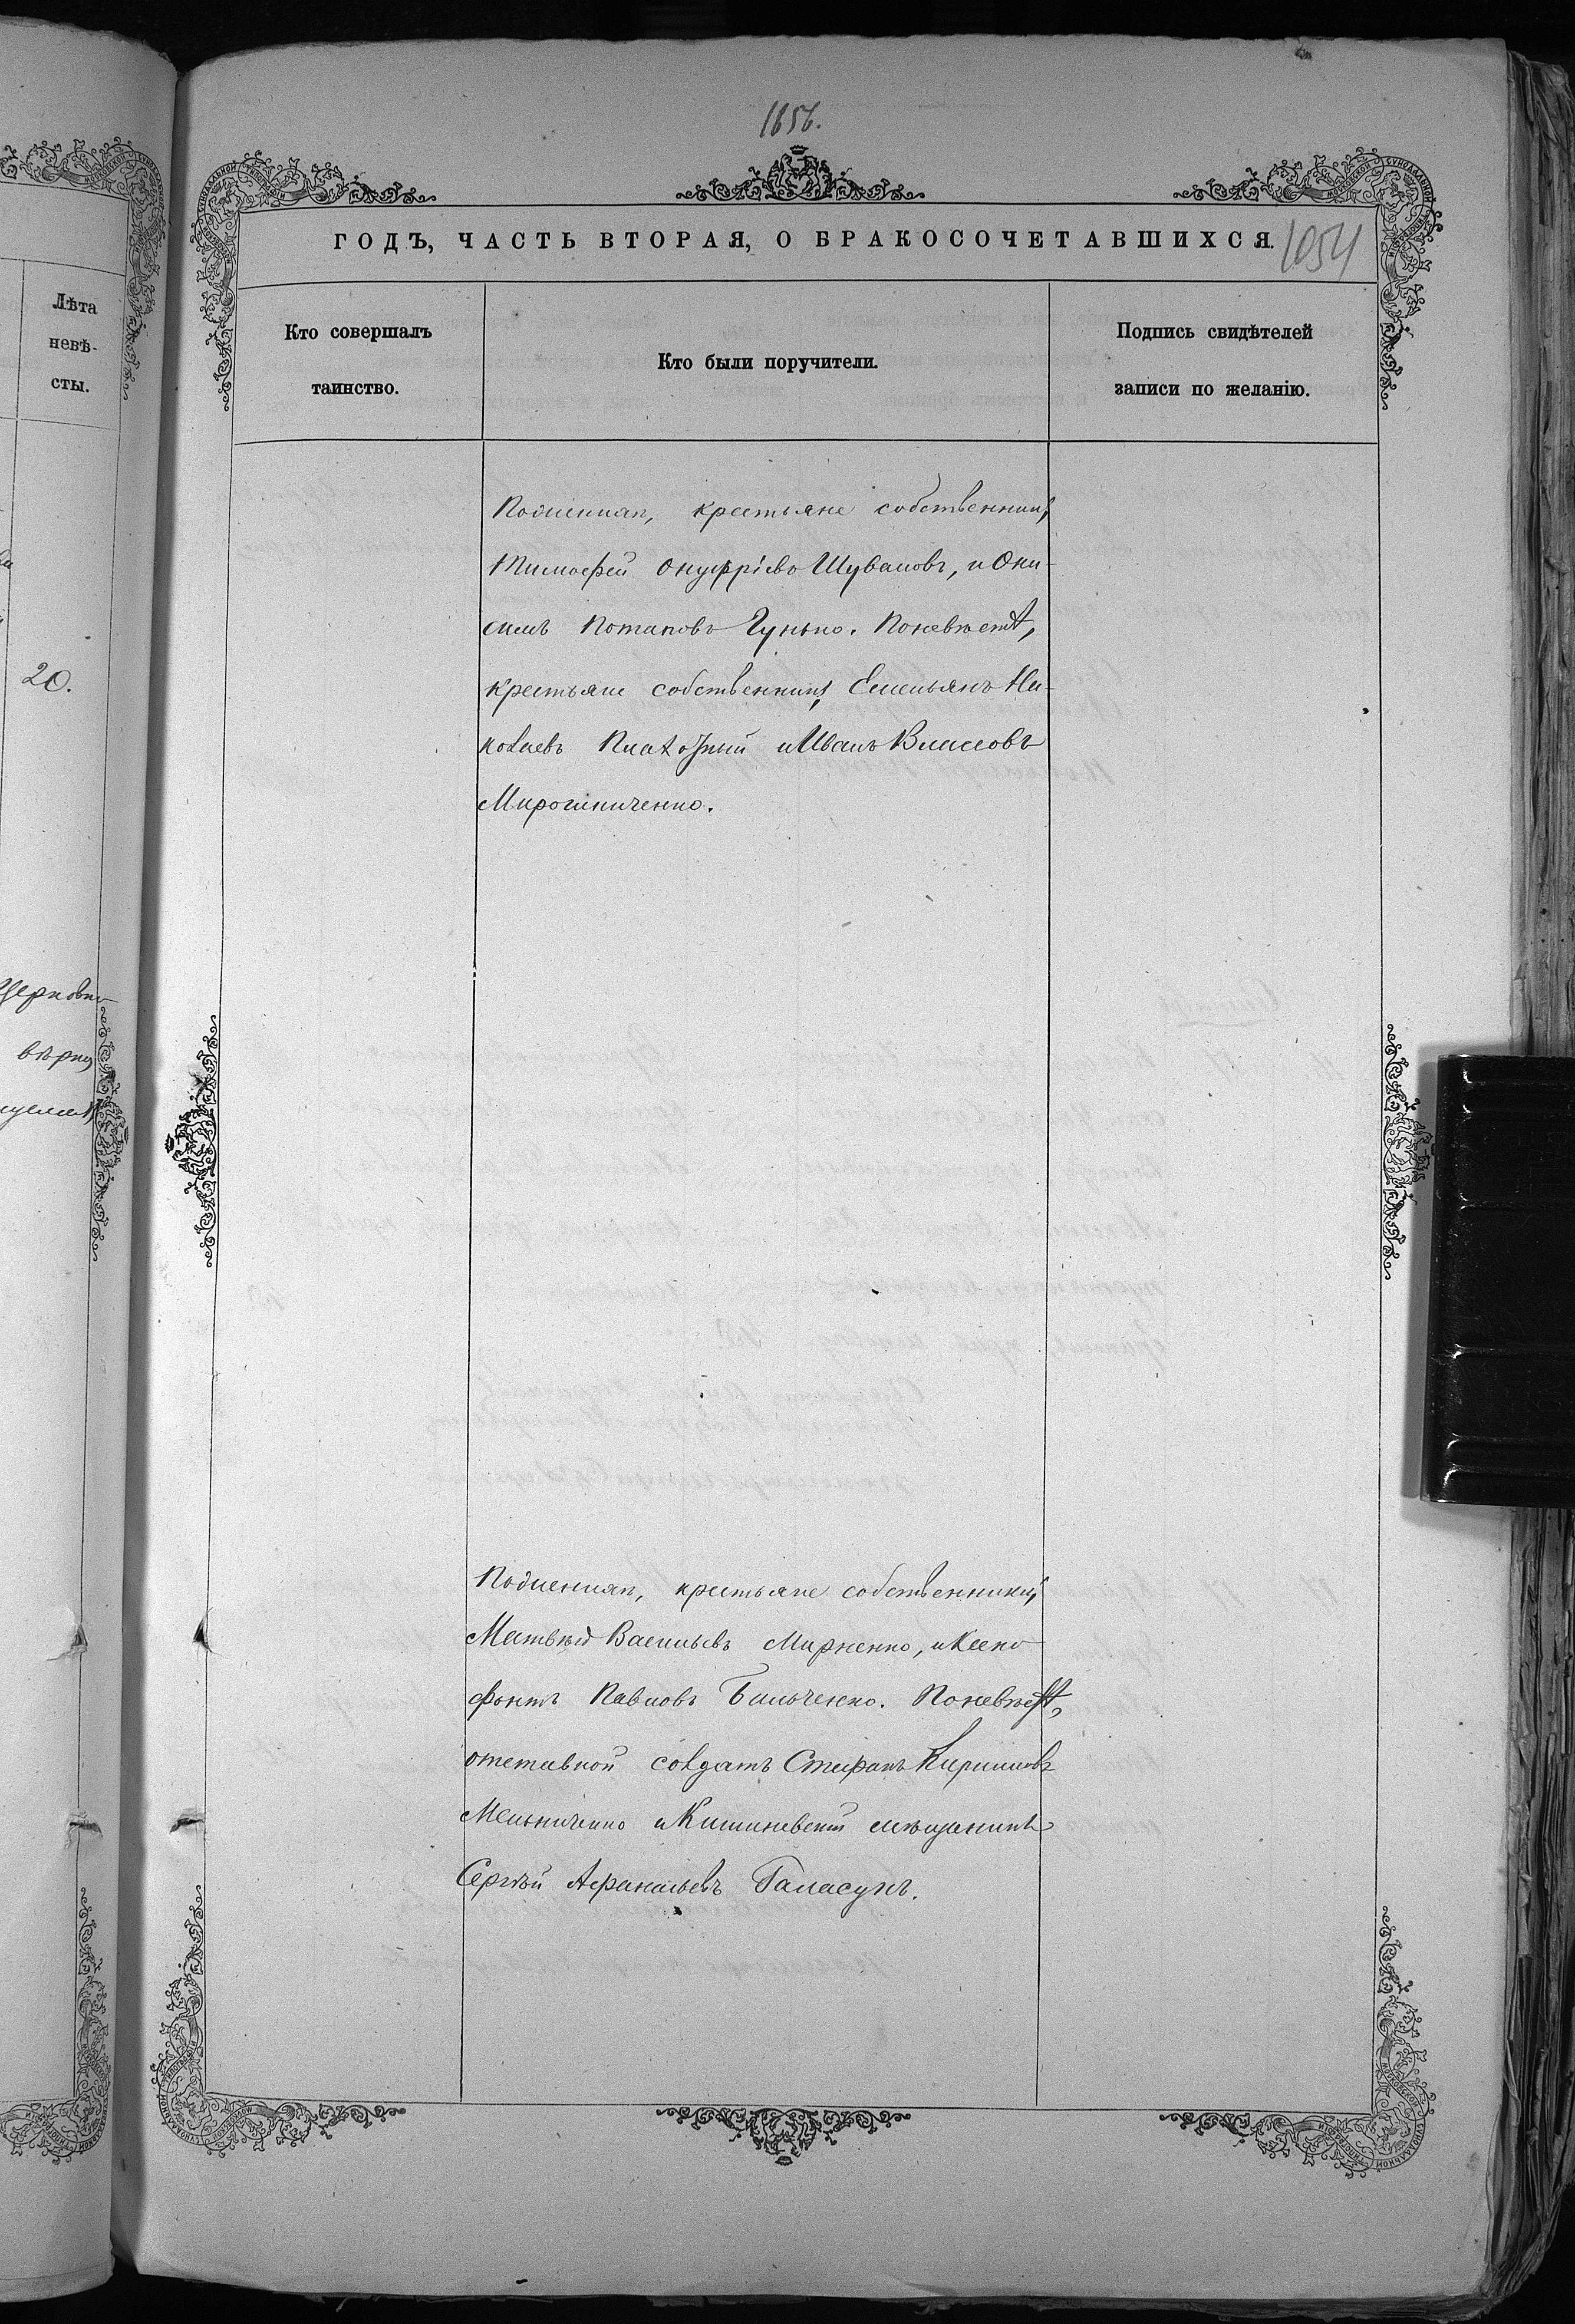 1656.
1054
ГОДЪ, ЧАСТЬ ВТОРАЯ, О БРАКОСОЧЕТАВШИХСЯ.
Лѣта
невѣ-
сты.
Кто совершалъ
таинство.
Кто были поручители.
Подпись свидѣтелей
записи по желанію.
20.
вѣрно
По женихѣ, крестьяне собственники,
Тимофей Онуфріевъ Шуваловъ, и Они-
симъ Потаповъ Гунько. По невѣстѣ,
крестьяне собственники, Емельянъ Ни-
колаевъ Платозный и Иванъ Власовъ
Мирошниченко.
По женихѣ, крестьяне собственники,
Матвѣй Васильевъ Мирненко, и Ксено-
фонтъ Павловъ Бильченко. По невѣстѣ,
отставной солдатъ Стефанъ Кириловъ
Мельниченко и Кишиневскій мѣщанинъ
Сергѣй Афанасьевъ Галасунъ.